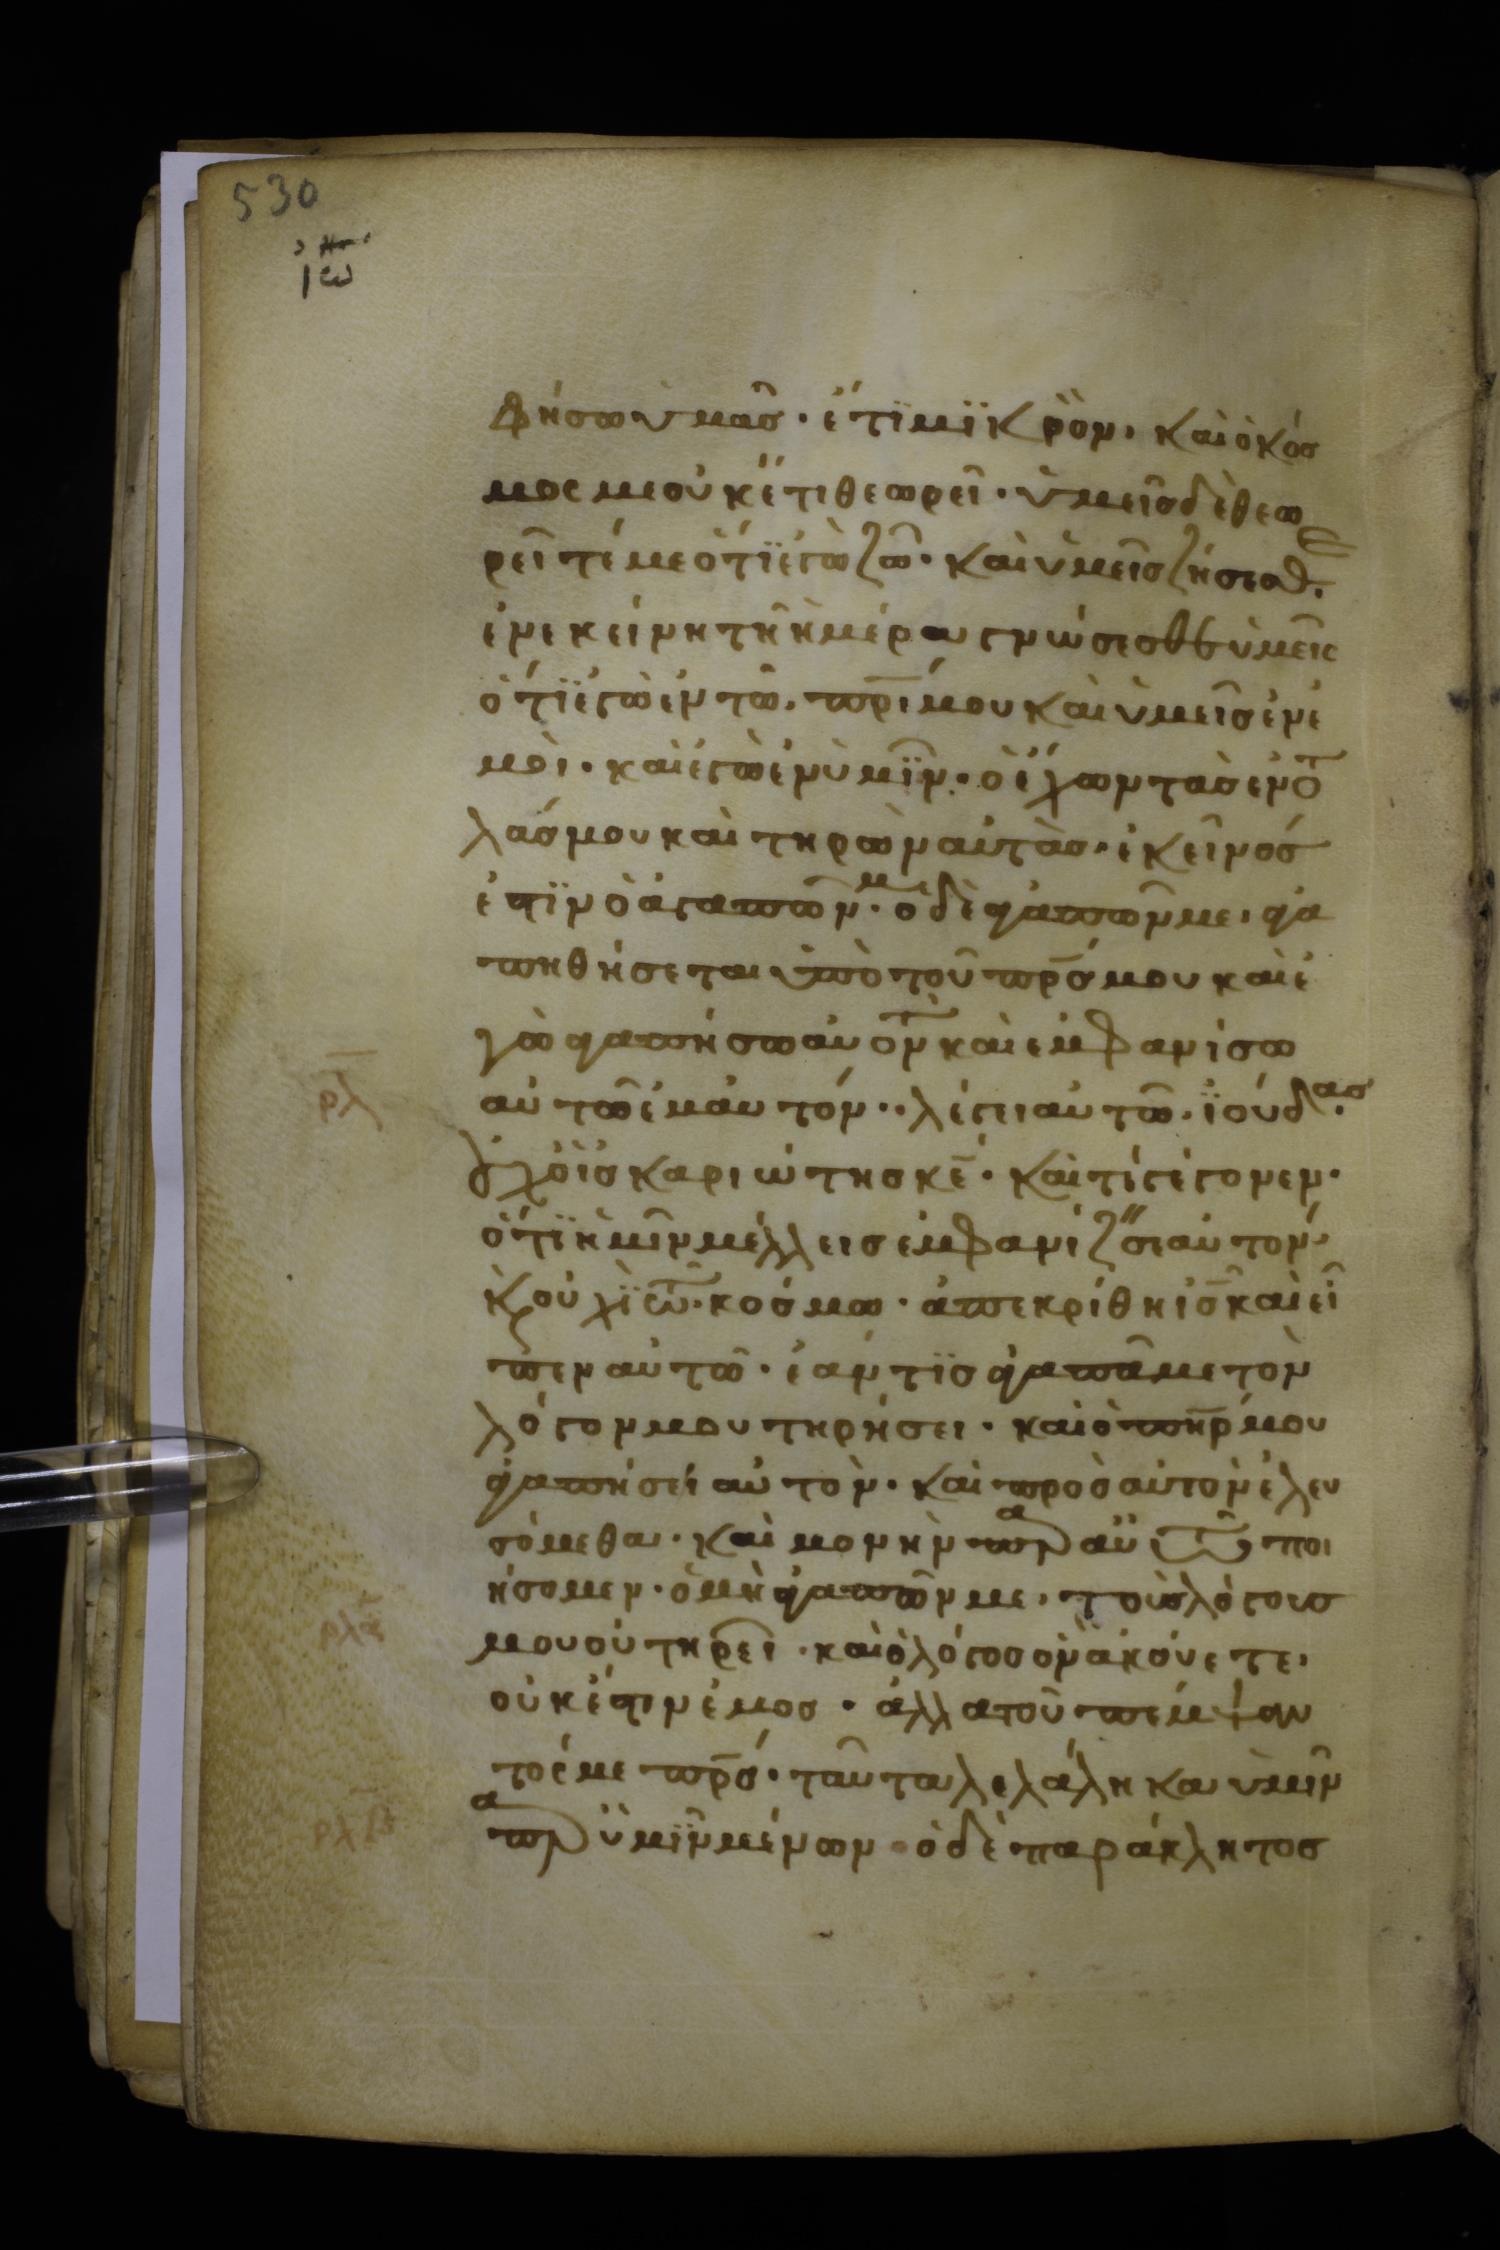 530
ιω
φήσω ὑμᾶσ · ἔτϊ μϊκρὸν · καὶ ὁ κόσ
μος με οὐκἔτι θεωρεῖ · ὑμεῖσ δὲ θεω
ρεῖτέ με ὅτϊ ἐγὼ ζῶ · καὶ ὑμεῖσ ζήσεσθε ·
ἐν ἐκείνη τῆ ἡμέρα γνώσεσθε ὑμεῖς
ὅτϊ ἐγὼ ἐν τῶ · πρί μου καὶ ὑμεῖσ ἐν ἐ
μοὶ · καὶ ἐγὼ ἐν ὑμῖν · ὁ ἔχων τὰσ ἐντο
λάσ μου καὶ τηρῶν αὐτὰσ · ἐκεῖνοσ
ἐστϊν ὁ ἀγαπῶν με · ὁ δὲ ἀγαπῶν με · ἀγα
πηθήσεται ὑπὸ τοῦ πρσ μου καὶ ἐ
γὼ ἀγαπήσω αὐτὸν καὶ ἐμφανίσω
αὐτῶ ἐμαυτόν · · λέγει αὐτῶ · ϊούδασ ·
ρλ
οὐχ ὁ ϊσκαριώτησ κε · καὶ τί γέγονεν ·
ὅτϊ ἡμῖν μέλλεισ ἐμφανίζειν σεαυτόν
καὶ οὐχὶ τῶ · κόσμω · ἀπεκρίθη ισ καὶ εἶ
πεν αὐτῶ · ἐάν τϊσ ἀγαπᾶ με τὸν
λόγον μου τηρήσει · καὶ ὁ πηρ μου
ἀγαπήσει αὐτὸν · καὶ πρὸσ αὐτὸν ἐλευ
σόμεθα · καὶ μονὴν παρ αὐτῶ ποι
ήσομεν · ὁ μὴ ἀγαπῶν με · τοὺσ λόγουσ
ρλα
μου οὐ τηρεῖ · καὶ ὁ λόγοσ ὃν ἀκούετε ·
οὐκ ἔστιν ἐμοσ · ἀλλα τοῦ πέμψαν
τος με πρσ · ταῦτα λελάληκα ὑμῖν
παρ ὑμῖν μένων · ὁ δὲ παράκλητοσ
ρλβ